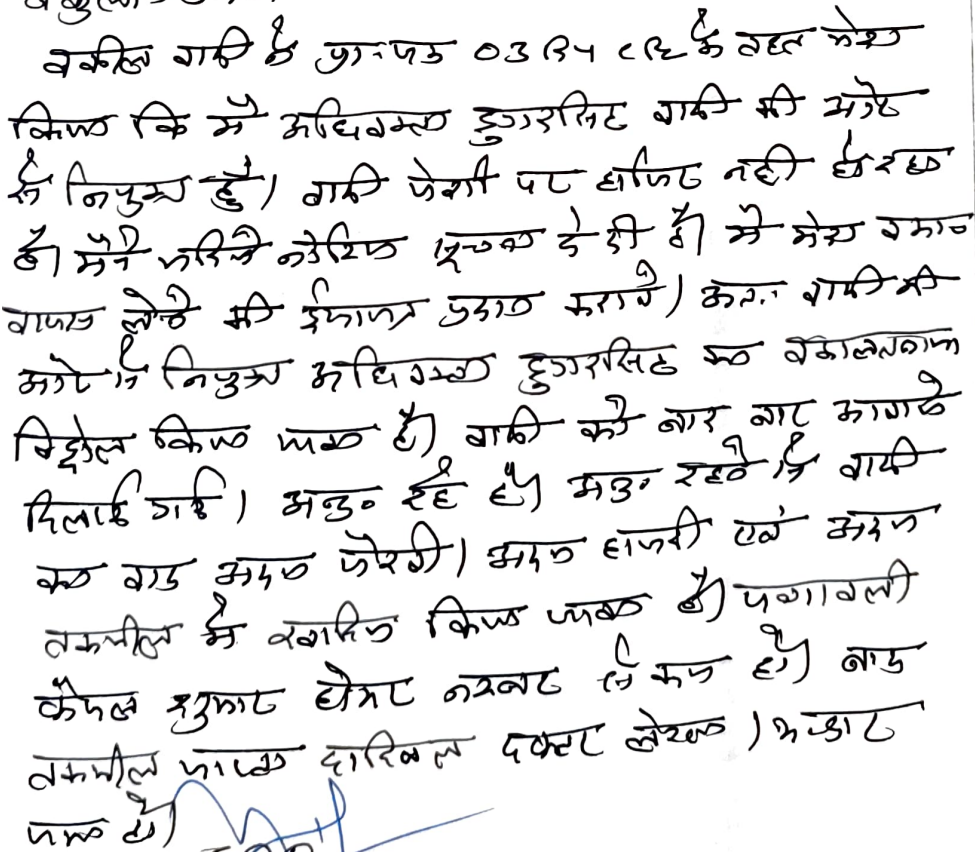 वकील वादी ने प्रा-पत्र 03 R4 CPC के तहत पेश
किया कि मैं अधिवक्ता डुगरसिंह वादी की ओर
से नियुक्त हूँ। वादी पेशी पर हाजिर नही हो रहा
है। मैने नोटिस सूचना दे दी है। मै मेरा
वापस लेने की ईजाजत प्रदान करावे। अतः वादी की
ओर से नियुक्त अधिवक्ता डुगरसिंह का वकालतनामा
विड्रोल किया जाता है। वादी को बार बार आवाजे
दिलाई गई। अनु० रहे है। अनु० रहने से वादी
का वाद अदम पेरवी। अदम हाजरी एवं अदम
तकमील में खारिज किया जाता है। पत्रावली
फैसल शुमार होकर नम्बर से कम हो। बाद
तकमील जाप्ता दाखिल दफ्तर लेख्य।